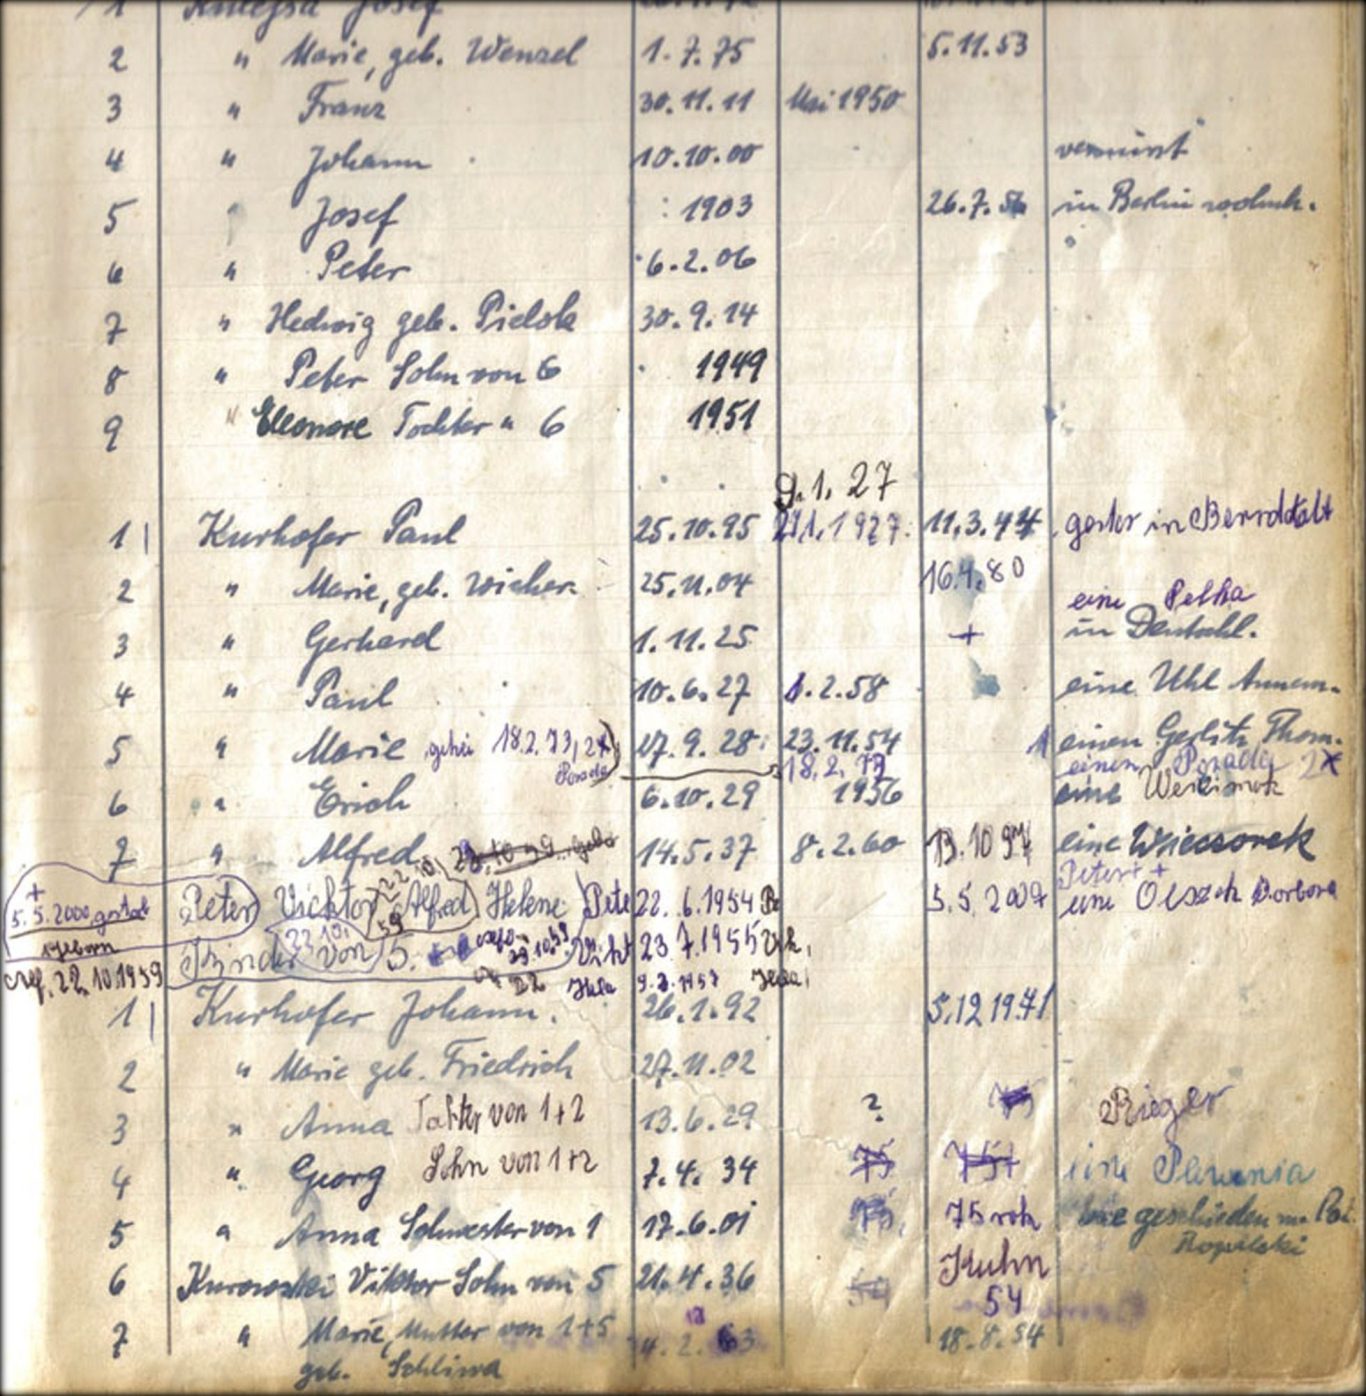 1 Josef
2 " Marie, geb. Wenzel 1.7.75 5.11.53
3 " Franz 30.11.11 Mai 1950
4 " Johann 10.10.00 vermisst
5 " Josef 1903 26.7.56 in Berlin wohnh.
6 " Peter 6.2.06
7 " Hedwig geb. Pielok 30.9.14
8 " Peter Sohn von 6 1949
9 " Eleonore Tochter " 6 1951
9.1.27
1 Kurhofer Paul 25.10.95 1927 11.3.44 gestor in
2 " Marie, geb. Wicher 25.11.04 16.4.80
eine Pelka
3 " Gerhard 1.11.25 + in Deutschl.
4 " Paul 10.6.27 1.2.58 eine Uhl Annem.
5 " Marie 18.2.73, 2x 27.9.28 23.11.54 einen Gerlitz Thom.
Porada 18.2.73 einen Porada 2x
6 " Erich 6.10.29 1956 eine
7 " Alfred 14.5.37 8.2.60 13.10.97 eine Wieczorek
+ 22.10. Peter + +
5.5.2000 gestor Peter Vicktor 59 Alfred Helene Pete 22.6.1954 Pe 5.5.2007 eine Olszok Barbara
geboren
Kinder von 5. 22.10. Vikt 23.7.1955 Vik.
22.10.1959 22 Hela 9.2.1957 Hela
1 Kurhofer Johann. 26.1.92 5.12.1971
2 " Marie geb. Friedrich 27.11.02
3 " Anna Tochter von 1+2 13.6.29 ? Rieger
4 " Georg Sohn von 1+2 7.4.34 75 75+ eine
5 " Anna Schwester von 1 17.6.01 75. 75 rok geschieden
6 Viktor Sohn von 5 21.4.36 54 Kuhn
54
7 " Marie, Mutter von 1+5 4.2.63 18.8.54
geb. Schliwa